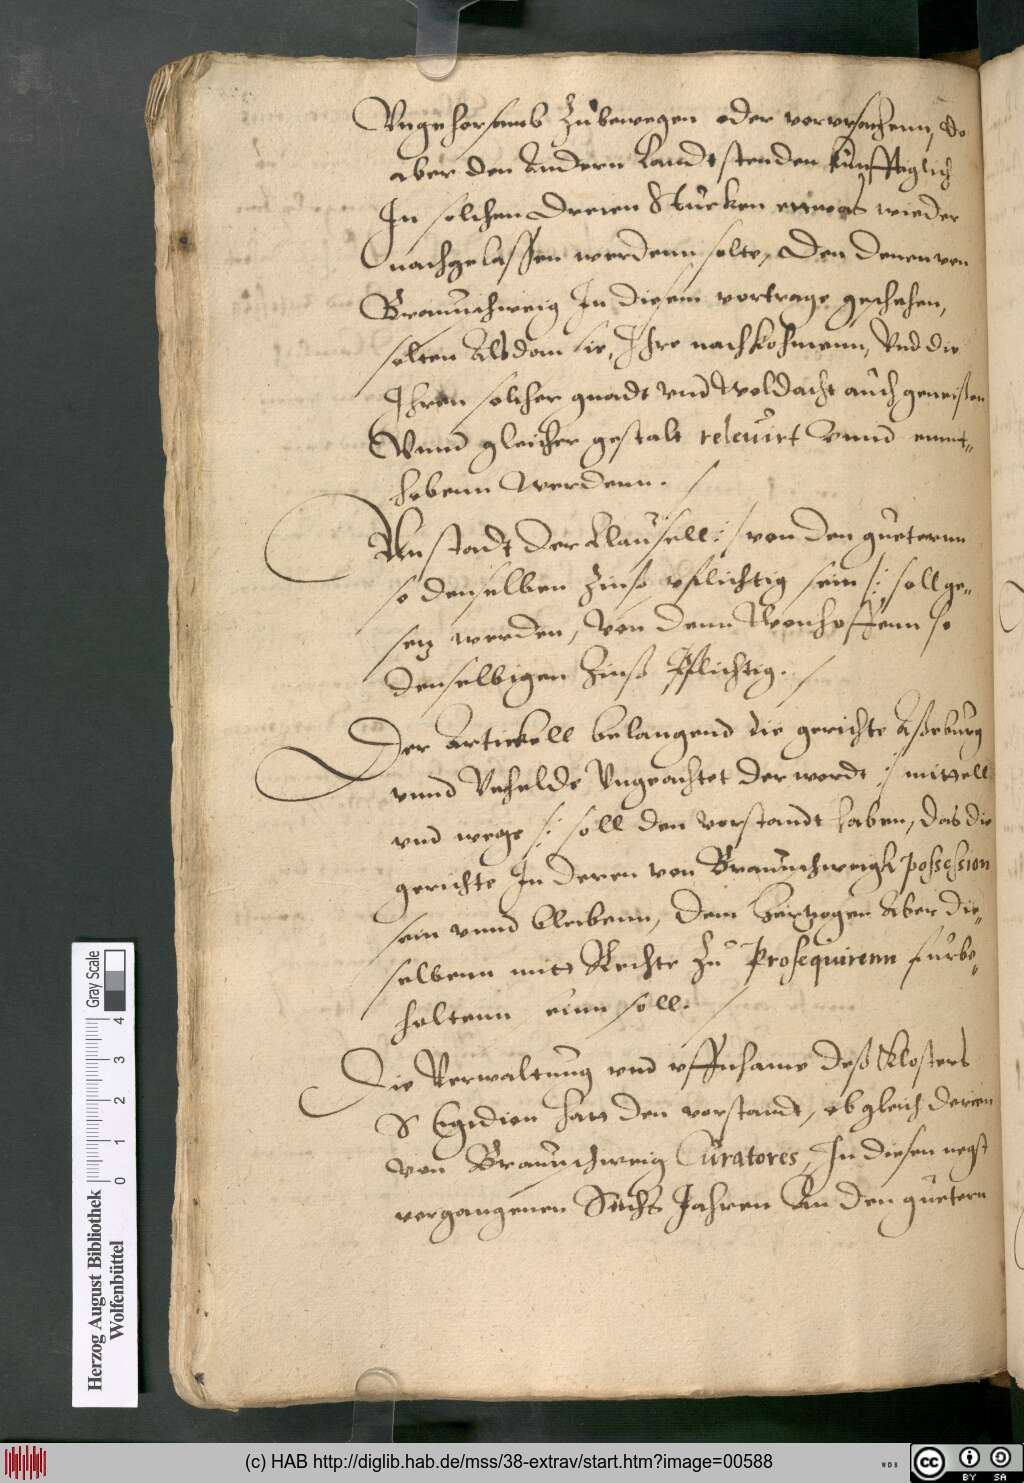 Vngehorsamb zubewegen oder vervrsachenn, So
aber den Andern Landtstenden künfftiglich
In solchen dreien Stücken etwas wieder
nachgelassen werdenn solte, den denen von
Braunschweig In diesem vortrage geschehen,
solten Alsdan sie, Ihre nachkohmenn, Vnd die
Ihren solcher gnadt vnd Woldacht auch genißen
Vnnd gleicher gestalt releuirt vnnd ennt-
hebenn Werdenn.
An stadt der Clausell :/ von den gueternn
so denselben Zinß pflichtig sein /: soll ge-
setz werden, Von denn Wonhoffenn so
denselbigen Zinß Pflichtig.
Der Artickell belangend die gerichte Aßeburg
vnnd Vechelde Vngeachtet der wordt :/ mittell
vnd wege /: soll den vorstandt haben, das die
gerichte In deren von Braunschweigk possession
sein vnnd bleibenn, dem Hertzogen Aber die-
selbenn mitt Rechte zu Prosequirenn furbe-
haltenn sein soll.
Die Verwaltung vnd vffnhame deß Klosters
S Egidien hatt den vorstandt, ob gleich deren
von Braunschweig Curatores, In diesen negst
vergangenen Sechs Jahren An den guetern
Herzog August Bibliothek
Wolfenbüttel
0 1 2 3 4
Gray Scale
(c) HAB http://diglib.hab.de/mss/38-extrav/start.htm?image=00588
WDB
cc BY SA